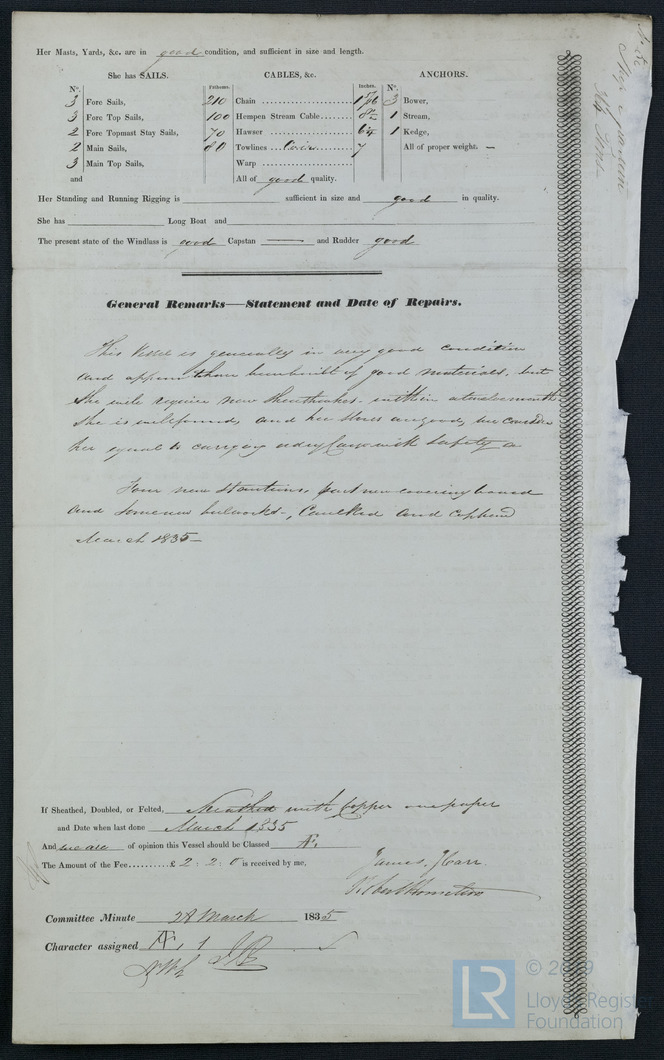 Her Masts, Yards, &c. are in good condition, and sufficient in size and length.
She has SAILS.
CABLES, &c.
ANCHORS.
Nº.
Fathoms.
Inches.
Nº.
3 Fore Sails, 210 Chain 1 5/16 3 Bower,
3 Fore Top Sails, 100 Hempen Stream Cable 8½ 1 Stream,
2 Fore Topmast Stay Sails, 70 Hawser 6¼ 1 Kedge,
2 Main Sails, 80 Towlines 7 All of proper weight. —
3 Main Top Sails, Warp
and All of good quality.
Her Standing and Running Rigging is sufficient in size and good in quality.
She has Long Boat and
The present state of the Windlass is good Capstan — and Rudder good
General Remarks—Statement and Date of Repairs.
This Vessel is generally in very good condition
and appears to have been built of good materials, but
She will require new within a twelvemonth
She is well found, and her Stores are good, we consider
her equal to carrying a dry Cargo with Safety
Four new Stantions, part new covering board
and some new bulworks, Caulked and
March 1835
If Sheathed, Doubled, or Felted, Sheathed with Copper over paper
and Date when last done March 1835
And we are of opinion this Vessel should be Classed Æ,
The Amount of the Fee £ 2 : 2 : 0 is received by me,
James
Robert
Committee Minute 28 March 1835
Character assigned Æ, 1
© 2019
LR
Lloyd's Register
Foundation
314 Tons